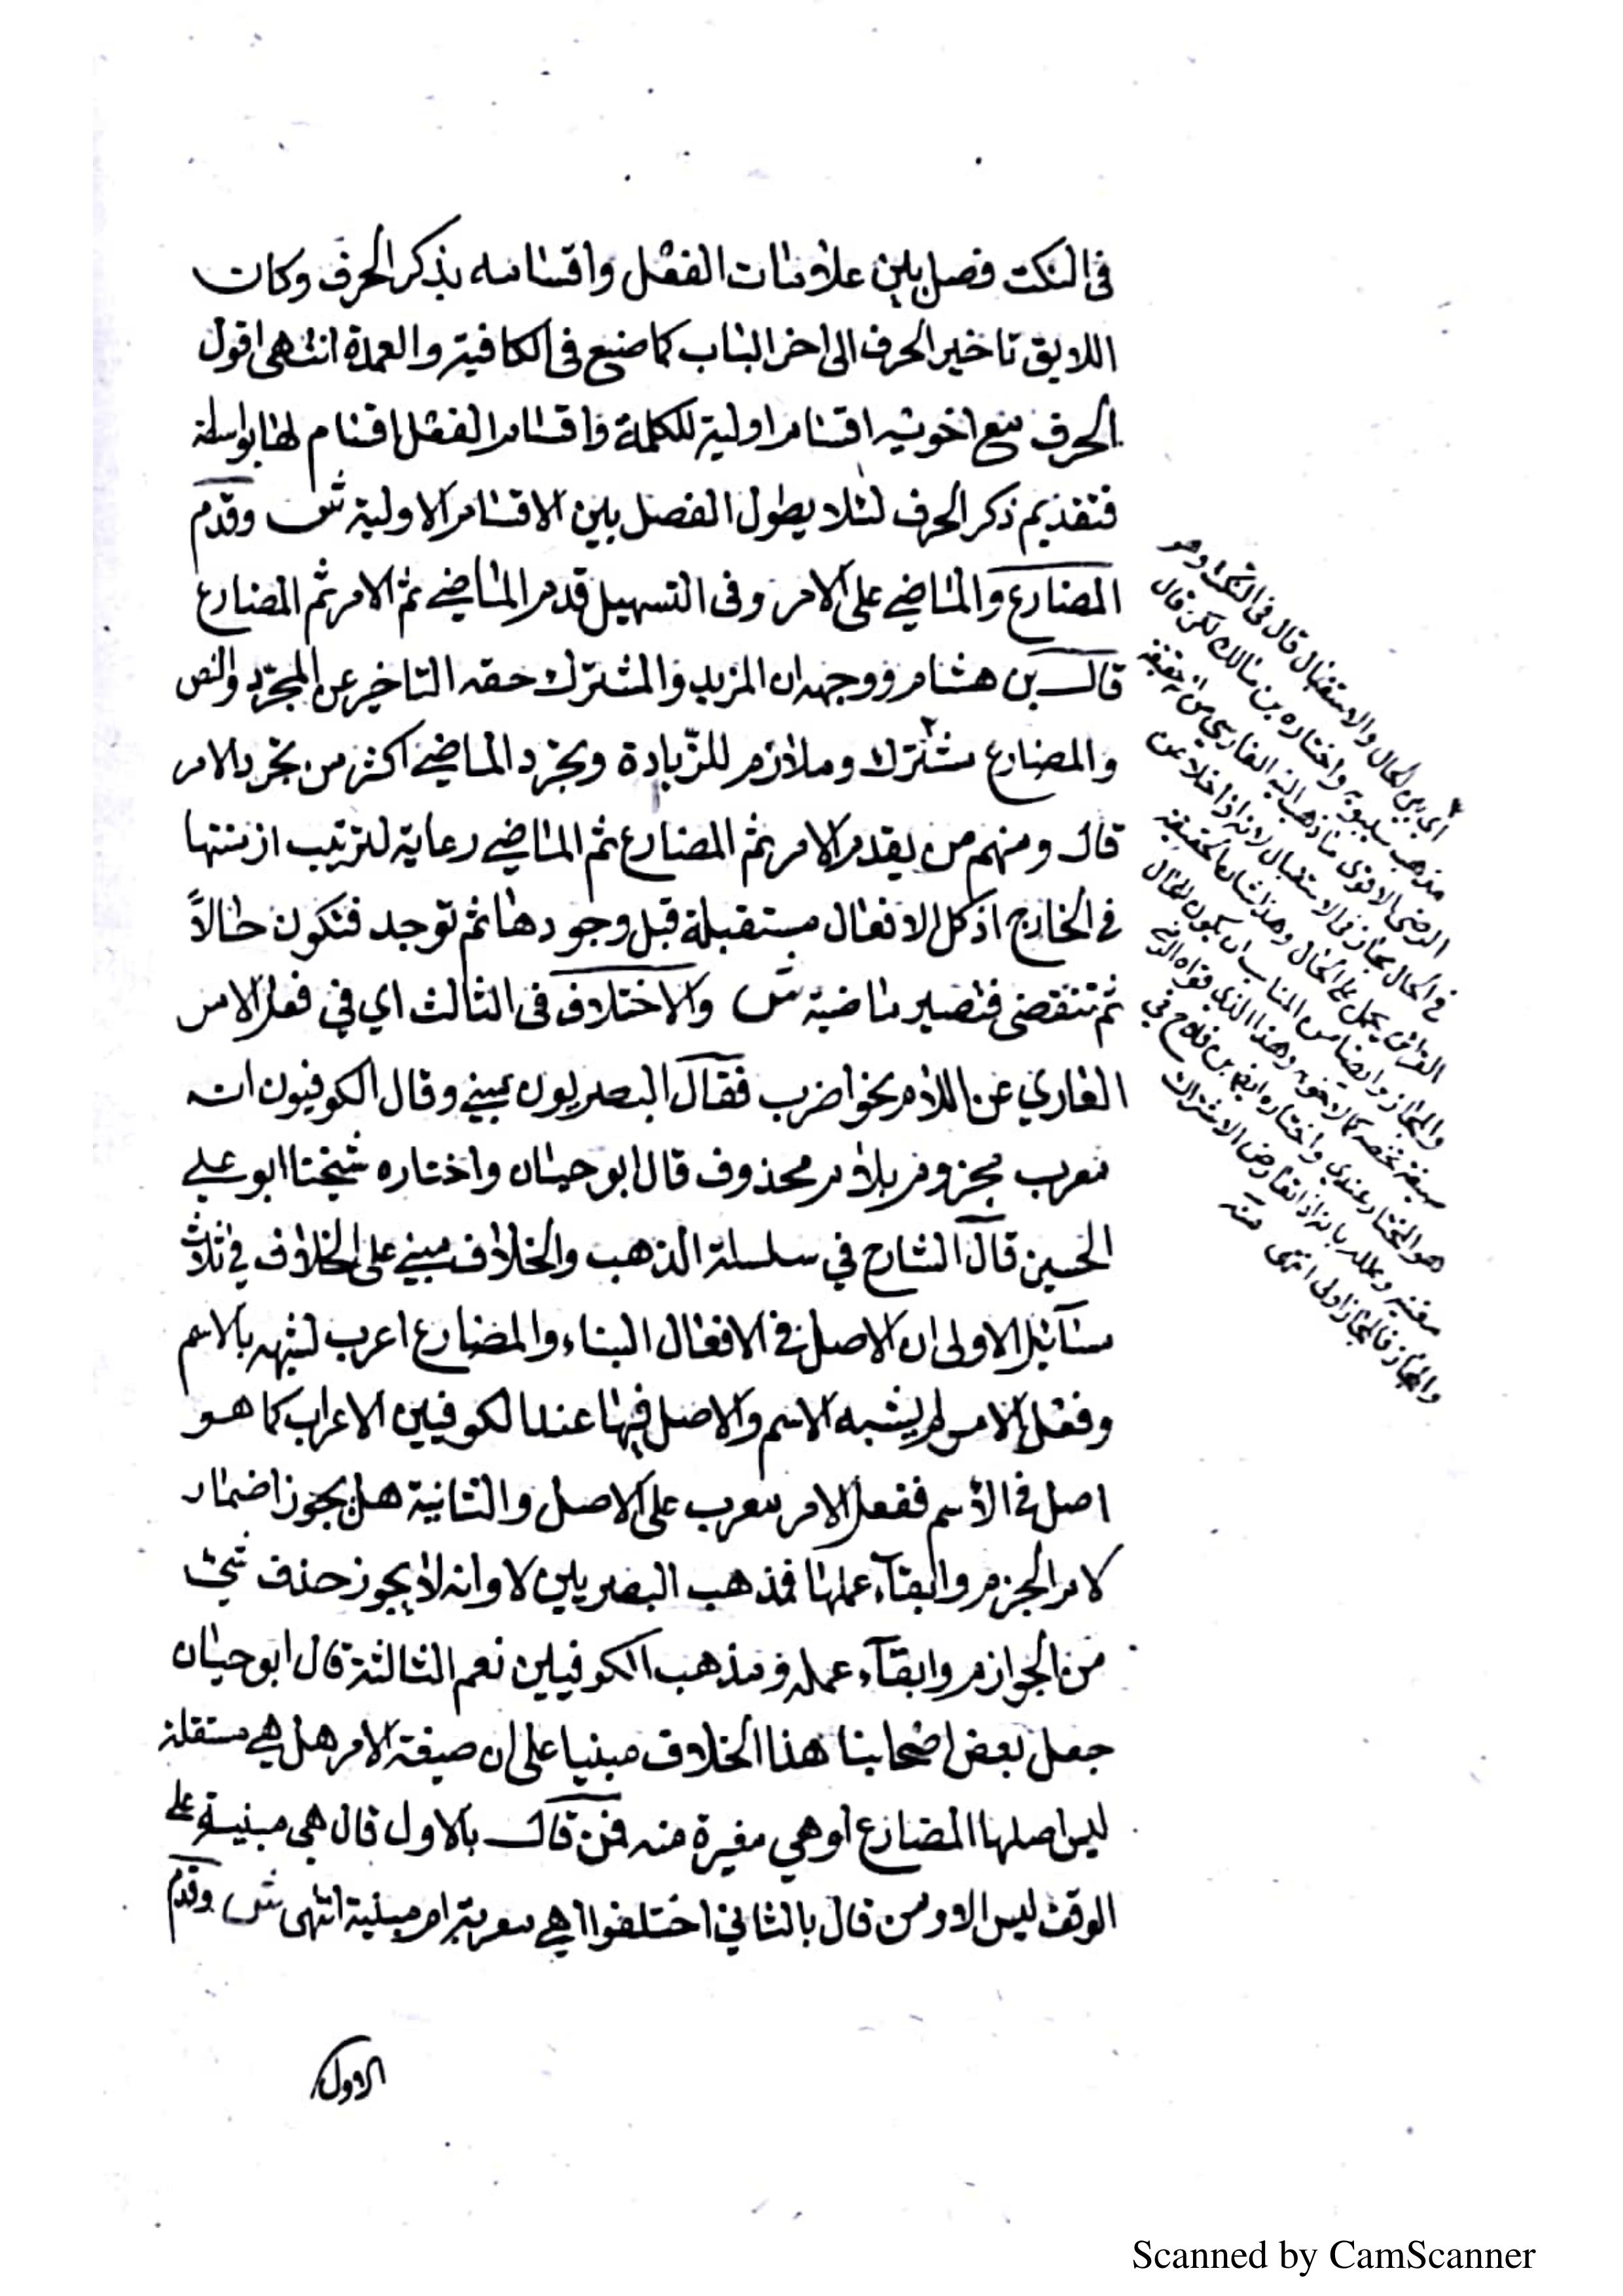 في النكت فصل بين علامات الفعل واقسامه بذكر الحرف وكان
اللايق تاخير الحرف الى اخر الباب كما صنع في الكافية والعمدة انتهى اقول
الحرف مع اخويه اقسام اولية للكلمة واقسام الفعل اقسام لها بواسطة
فتقديم ذكر الحرف لئلا يطول الفصل بين الاقسام الاولية ش وقدم
المضارع والماضي على الامر وفي التسهيل قدم الماضي ثم الامر ثم المضارع
قال بن هشام ووجهه ان المزيد والمشترك حقه التاخير عن المجرد والنص
والمضارع مشترك وملازم للزيادة وتجرد الماضي اكثر من تجرد الامر
قال ومنهم من يقدم الامر ثم المضارع ثم الماضي رعاية لترتيب ازمنتها
في الخارج اذ كل الافعال مستقبلة قبل وجودها ثم توجد فتكون حالاً
ثم تنقضى فتصير ماضية ش والاختلاف فى الثالث اي في فعل الامر
العاري عن اللام نحو اضرب فقال البصريون مبني وقال الكوفيون انه
معرب مجزوم بلام محذوف قال ابو حيان واختاره شيخنا ابو علي
الحسين قال الشارح في سلسلة الذهب والخلاف مبني على الخلاف في ثلاث
مسآئل الاولى ان الاصل في الافعال البناء والمضارع اعرب لشبهه بالاسم
وفعل الامر لم يشبه الاسم والاصل فيها عند الكوفيين الاعراب كما هو
اصل في الأسم ففعل الامر معرب على الاصل والثانية هل يجوز اضمار
لام الجزم وابقآء عملها فمذهب البصريين لا وانه لا يجوز حذف شئ
من الجوازم وابقآء عمله ومذهب الكوفيين نعم الثالثة قال ابو حيان
جعل بعض اصحابنا هذا الخلاف مبنيا على ان صيغة الامر هل هي مستقلة
ليس اصلها المضارع او هي مغيرة منه فمن قال بالاول قال هي مبنية على
الوقف ليس الا ومن قال بالثاني اختلفوا اهي معربة ام مبنية انتهى ش وقدم
الاول
اي بين الحال والاستقبال قال في النكت وهو
مذهب سيبويه واختاره بن مالك لكن قال
الرضى الاقوى ما ذهب اليه الفارسي من انه حقيقة
في الحال مجاز في الاستقبال لانه اذا خلا عن
القرائن يحمل على الحال وهذا شان الحقيقة
والمجاز وايضا من المناسب ان يكون للحال
صيغة تخصه كما لاخويه وهذا الذي قواه الرضي
هو المختار عندي واختاره ايضا بن فلاح في
مغنيه وعلله بانه اذا تعارض الاشتراك
والمجاز فالمجاز اولى انتهى منه
Scanned by CamScanner